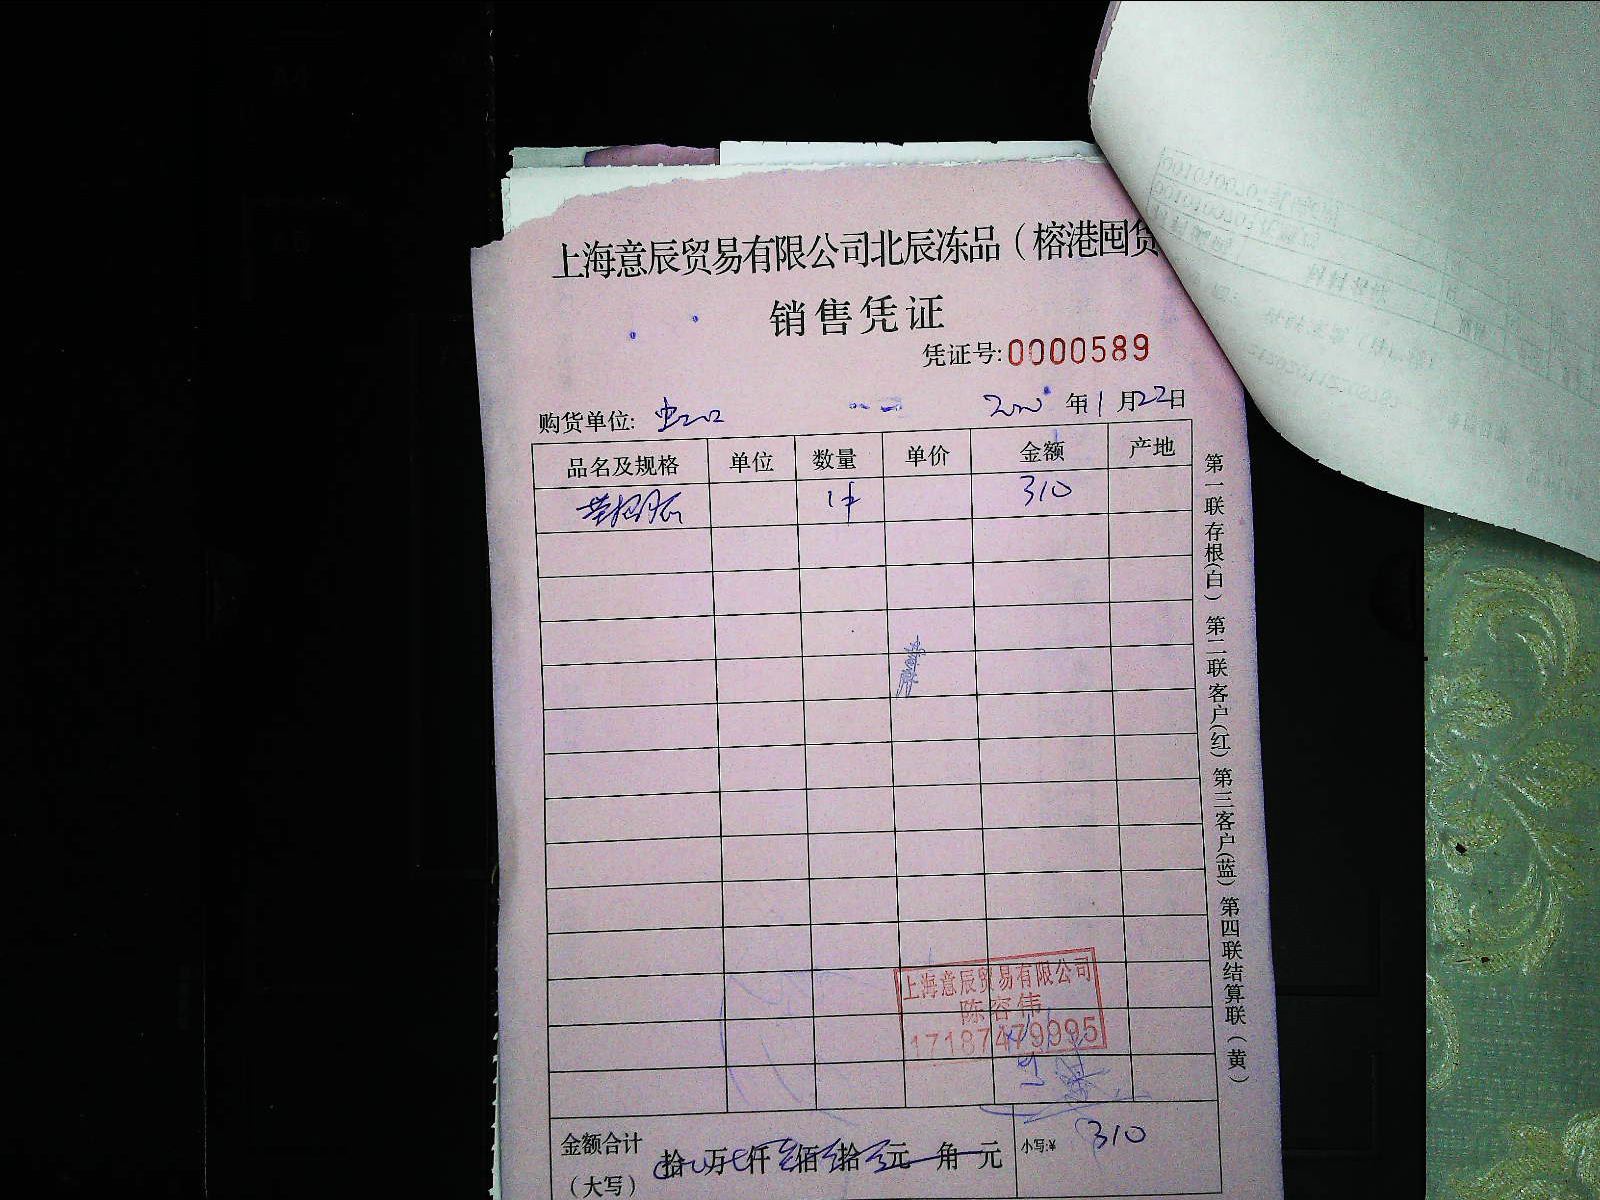 上海意辰贸易有限公司北辰冻品（榕港囤货
销售凭证
凭证号:0000589
购货单位: 虹口 年1月22日
品名及规格 单位 数量 单价 金额 产地
1件 310
第一联存根(白) 第二联客户(红) 第三客户(蓝) 第四联结算联(黄)
上海意辰贸易有限公司
陈容伟
17187479995
金额合计 拾 万 仟 佰 拾 元 角 元 小写:¥ 310
（大写）